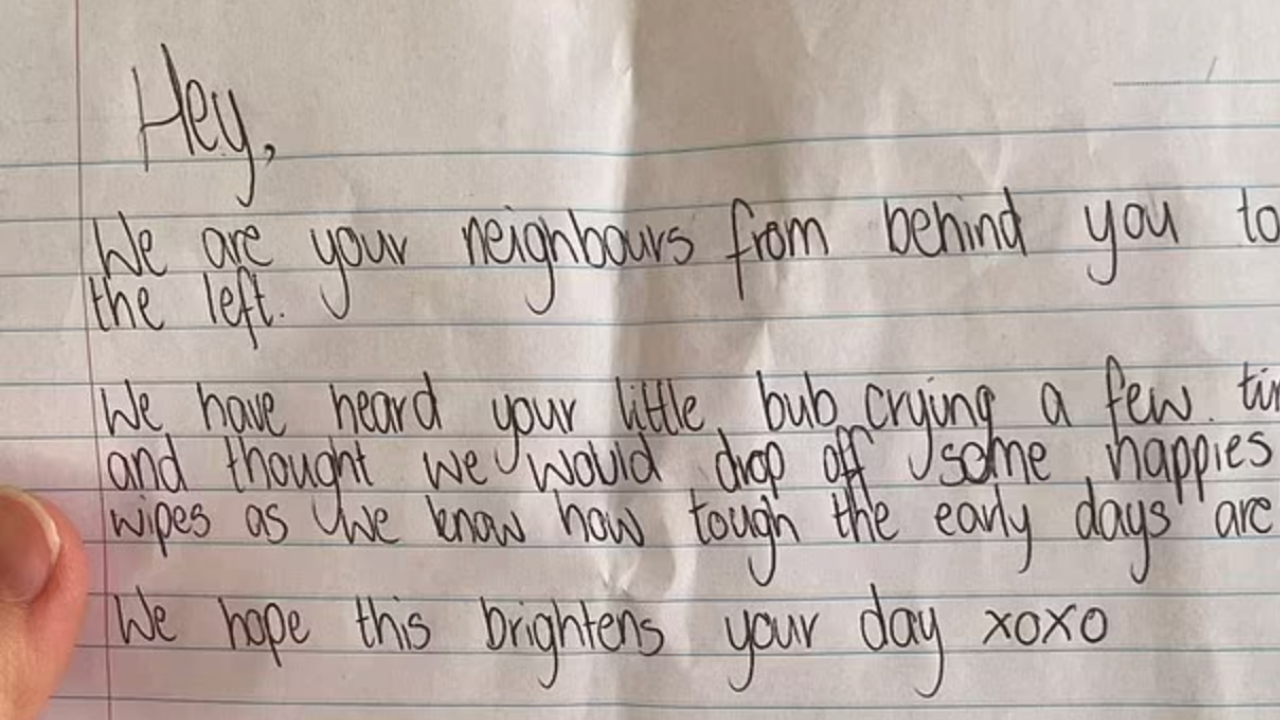 Hey,
We are your neighbours from behind you to
the left.
We have heard your little bub crying a few
and thought we would drop off some nappies
wipes as we know how tough the early days are
We hope this brightens your day xoxo